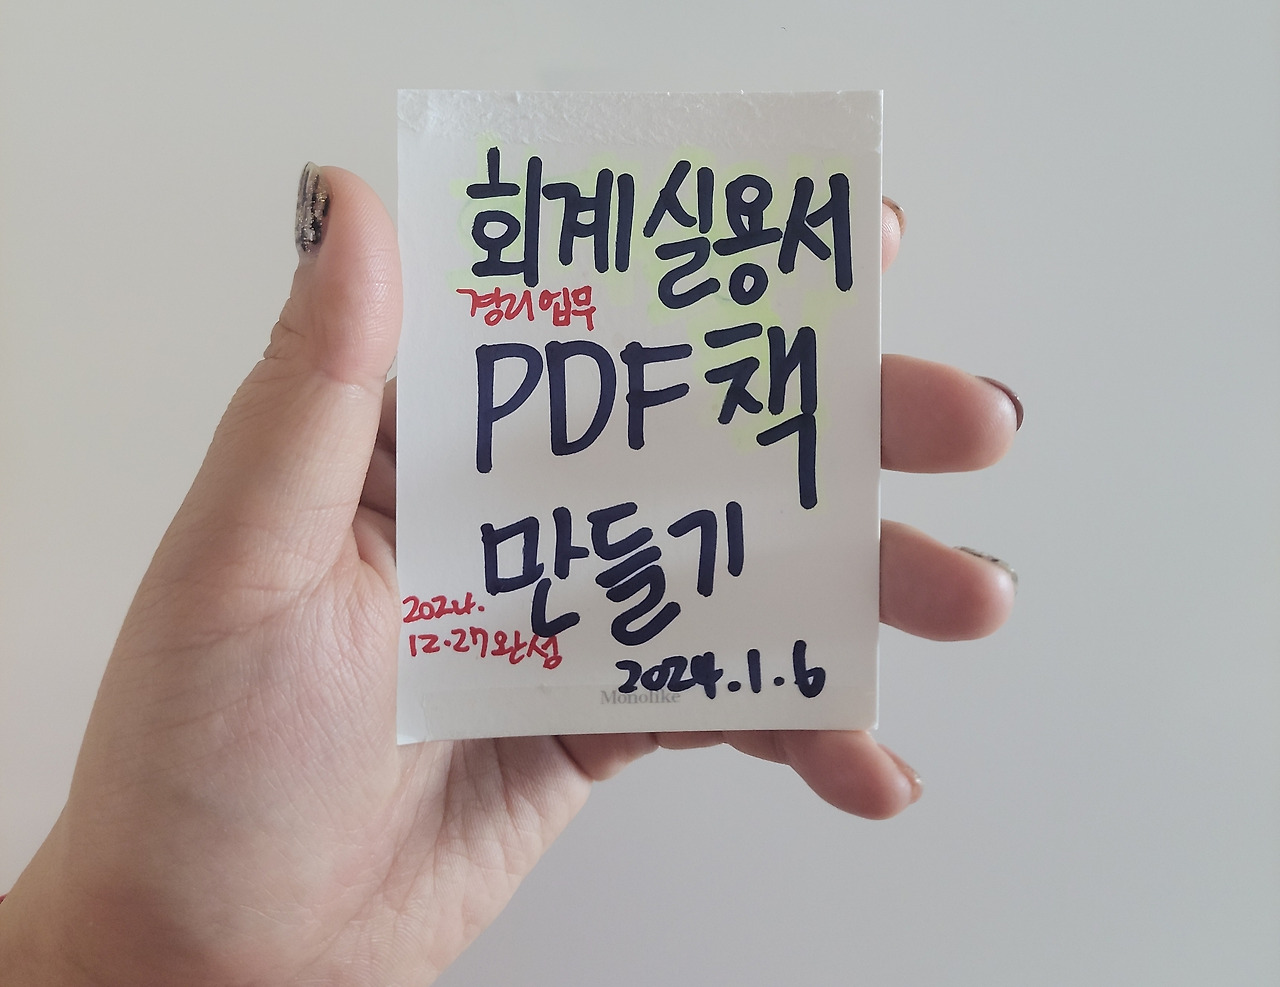 회계실용서
경리업무
PDF책
만들기
2024.
12.27완성
2024.1.6
Monolike